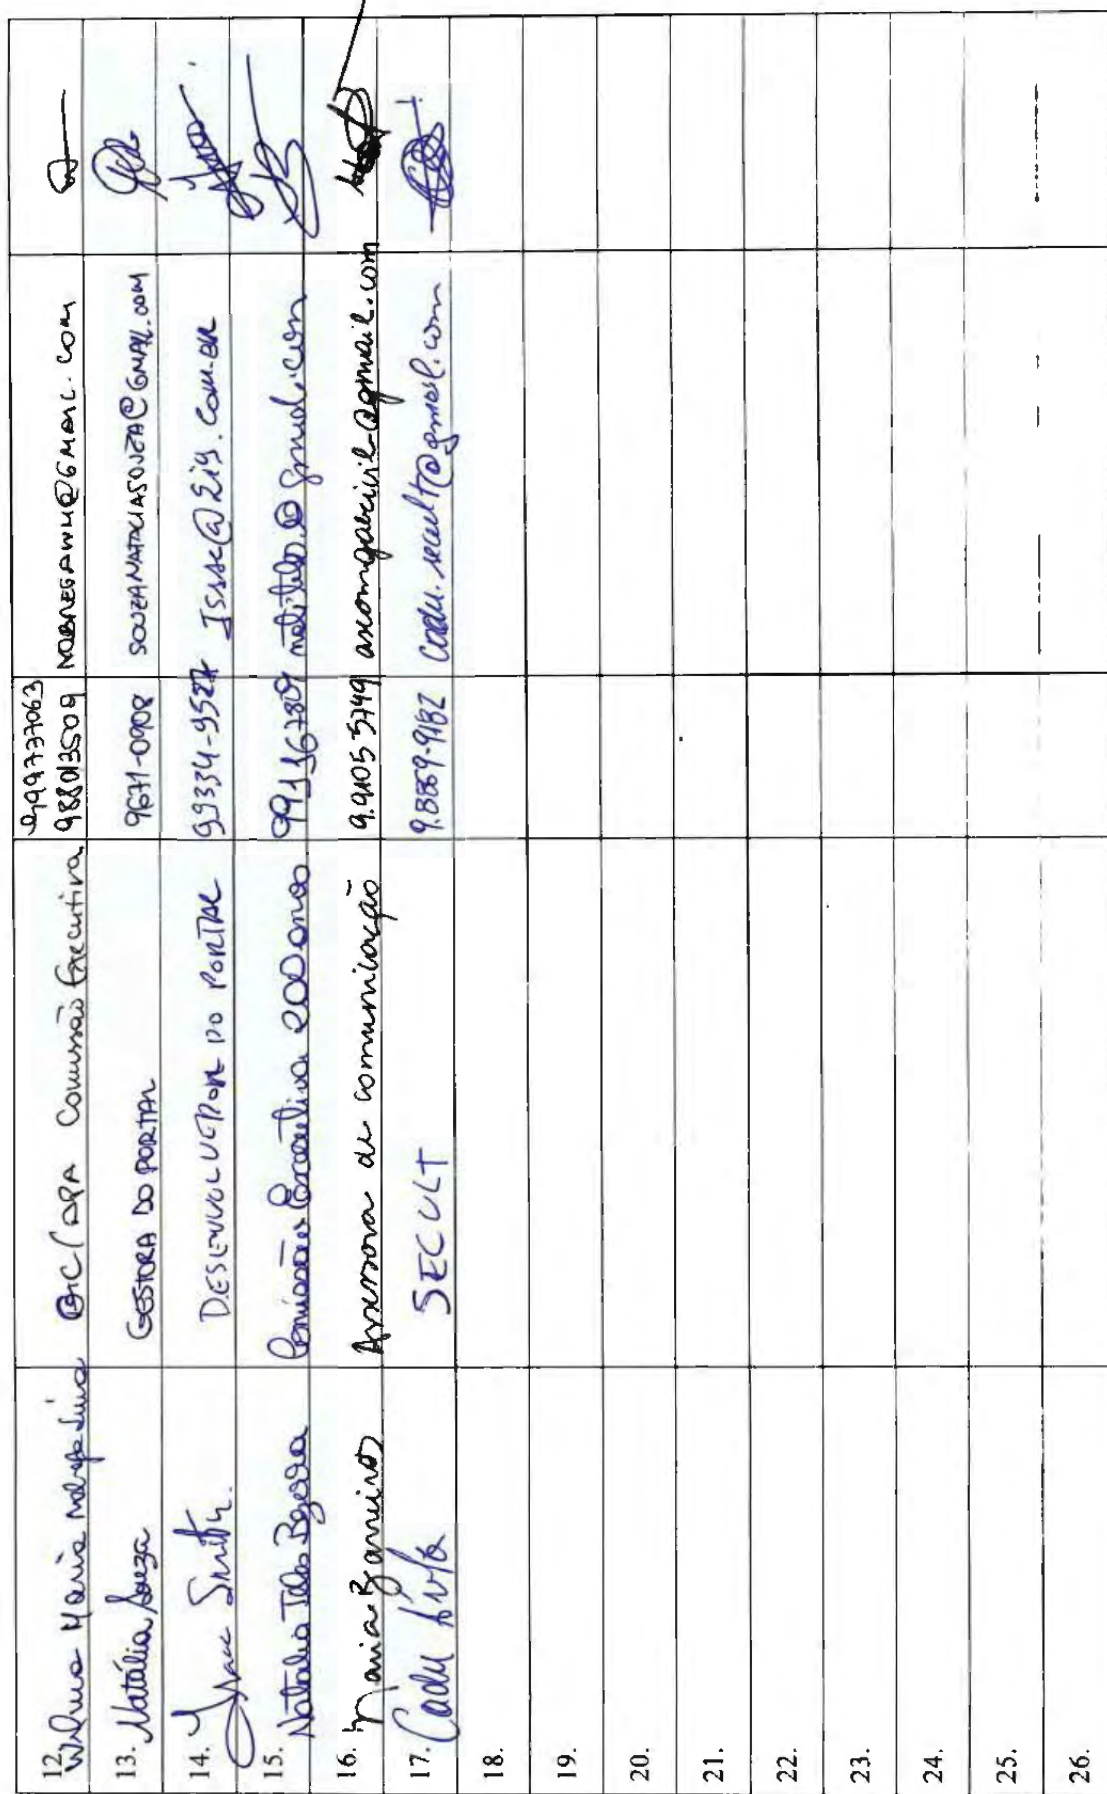 12. Wilma Maria Nobrega Lima GHC/APA Comissão Executiva 999737063
988013509 NOBREGAWM@GMAIL.COM
13. Natália Souza GESTORA DO PORTAL 9671-0908 SOUZANATALIASOUZA@GMAIL.COM
14. Isaac Smith. DESENVOLVEDOR DO PORTAL 99334-9527 ISSAC@EIG.COM.BR
15. Natalia Teles Bezerra Comissão Executiva 200 anos 991367809
16. Maria Barreiros Assessora de comunicação 9.9105 5749 ascomgabcivil@gmail.com
17. Cadu Ávila SECULT 9.8889-9182 cadu.secult@gmail.com
18.
19.
20.
21.
22.
23.
24.
25.
26.